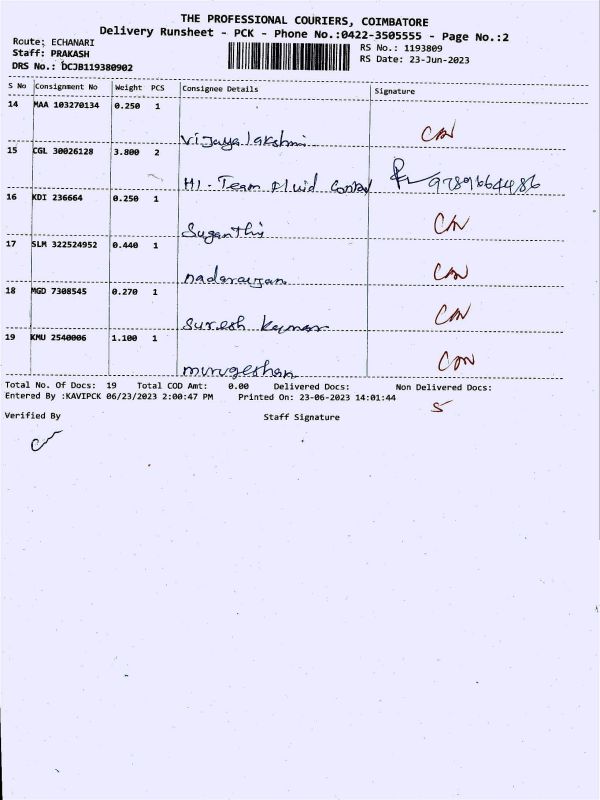 THE PROFESSIONAL COURIERS, COIMBATORE
Delivery Runsheet - PCK - Phone No.:0422-3505555 - Page No.:2
Route: ECHANARI
RS No.: 1193809
Staff: PRAKASH
RS Date: 23-Jun-2023
DRS No.: DCJB119380902
S No Consignment No Weight PCS Consignee Details Signature
14 MAA 103270134 0.250 1
Vijayalakshmi CAN
15 CGL 30026128 3.800 2
HI-Team Fluid 9789664486
16 KDI 236664 0.250 1
Suganthi CAN
17 SLM 322524952 0.440 1
nadarajan CAN
18 MGD 7308545 0.270 1
Suresh Kumar CAN
19 KMU 2540006 1.100 1
murugeshan CAN
Total No. Of Docs: 19 Total COD Amt: 0.00 Delivered Docs: Non Delivered Docs:
Entered By :KAVIPCK 06/23/2023 2:00:47 PM Printed On: 23-06-2023 14:01:44
5
Verified By Staff Signature